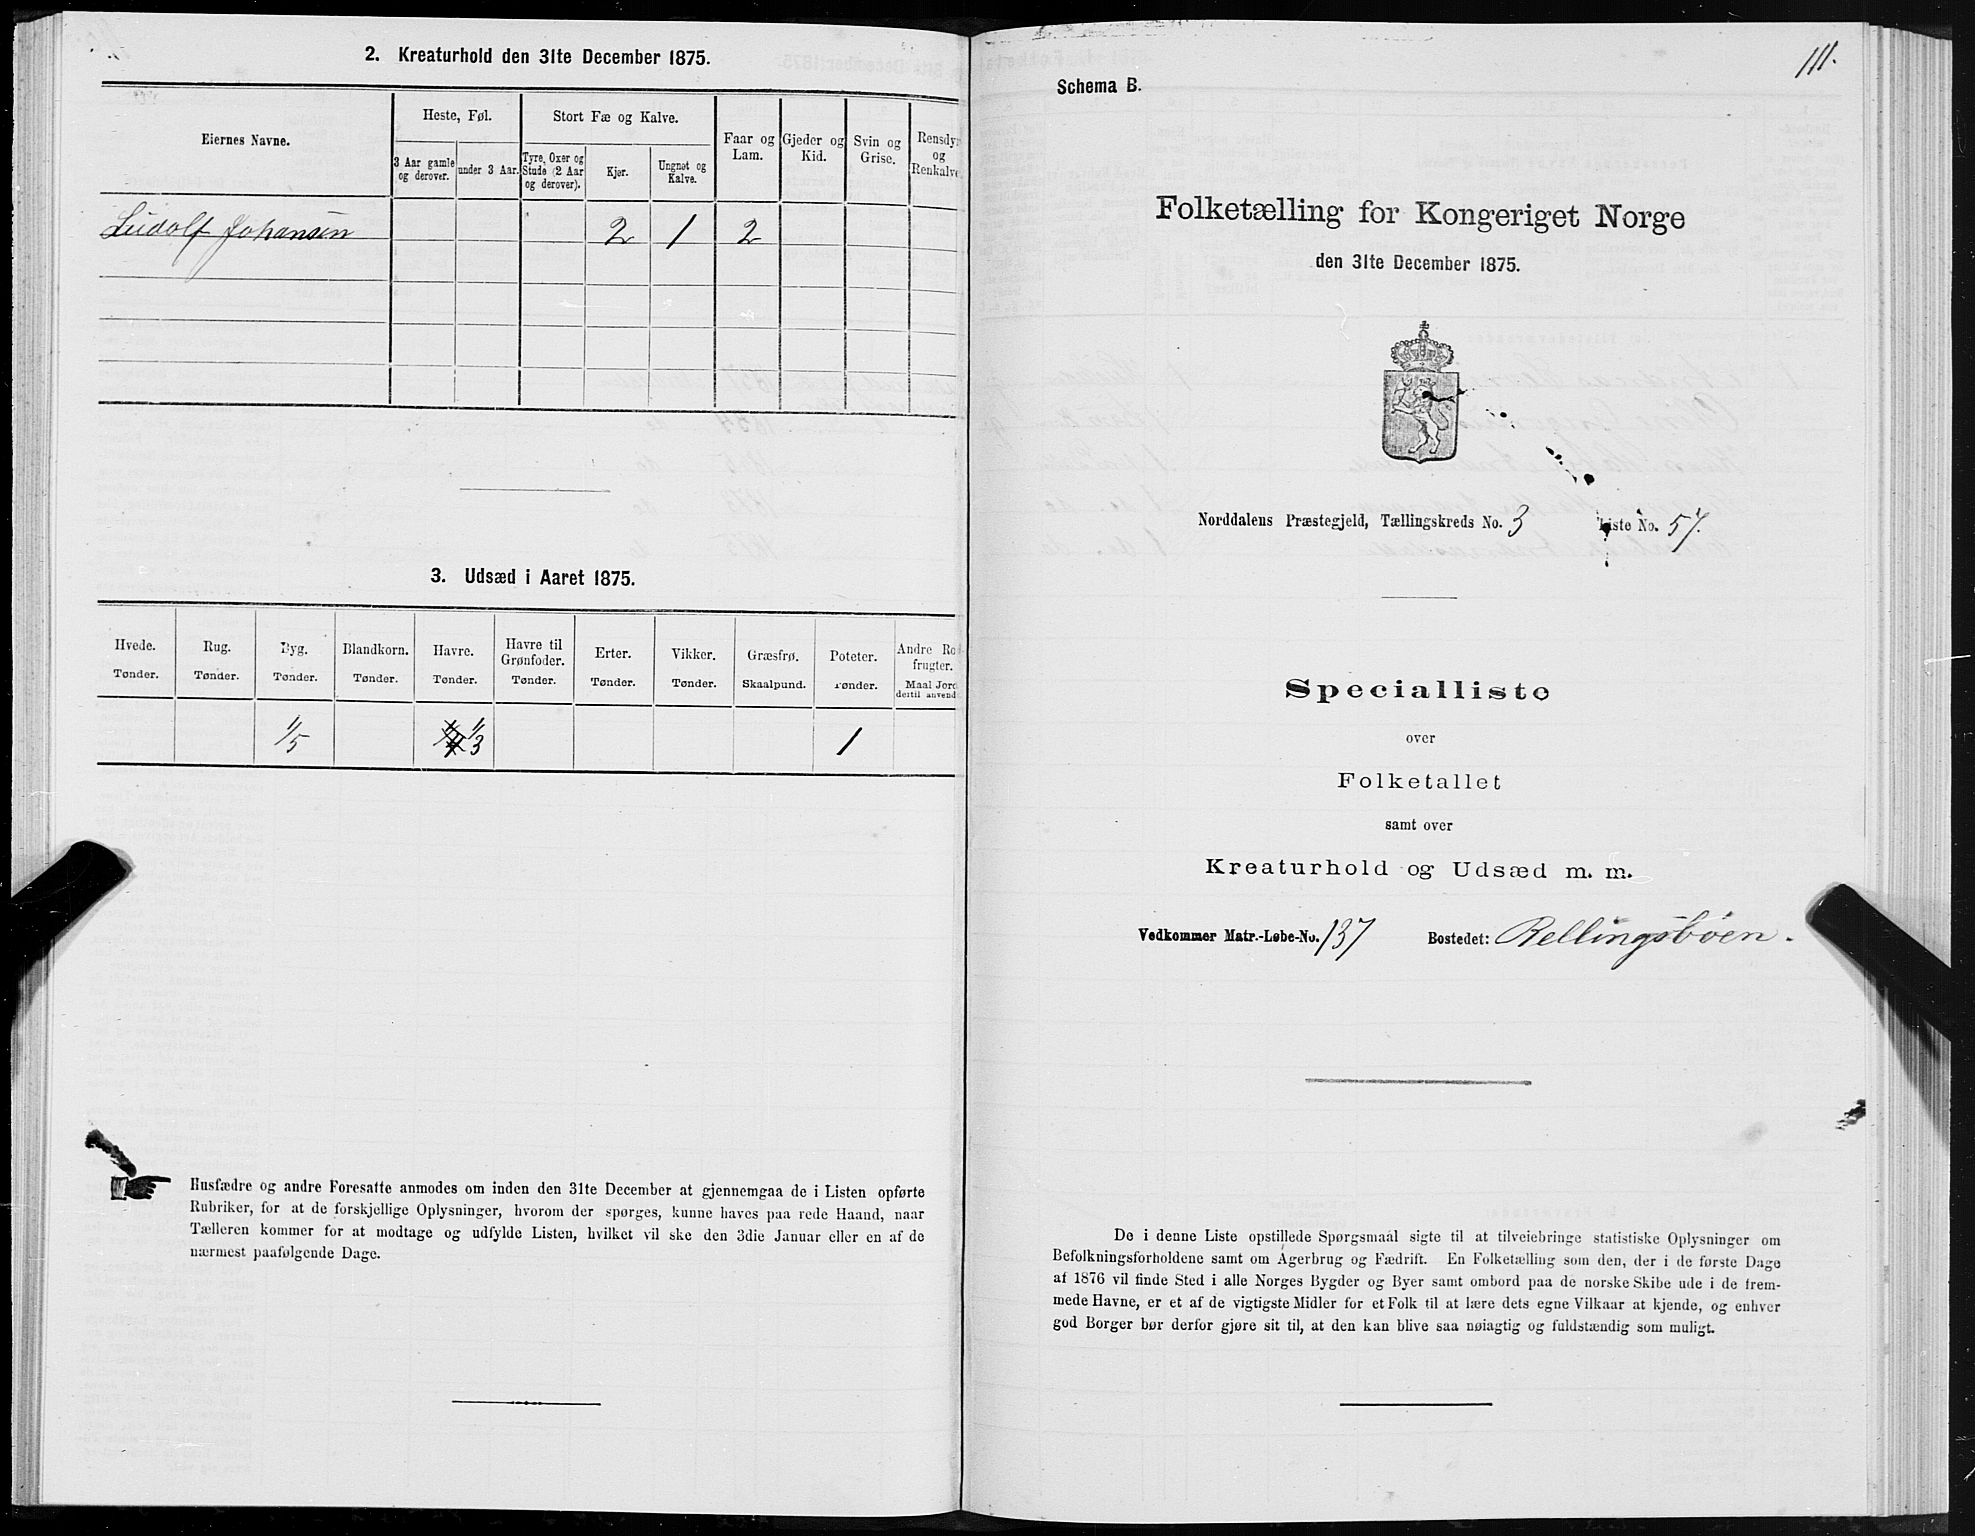 2. Kreaturhold den 31te December 1875.
Eiernes Navne.
Heste, Føl.
Stort Fæ og Kalve.
Faar og Lam.
Gjeder og Kid.
Svin og Grise.
Rensdyr og Renkalve
3 Aar gamle og derover.
under 3 Aar.
Tyre, Oxer og Stude (2 Aar og derover).
Kjør.
Ungnøt og Kalve.
Ludolf Johansen 2 1 2
3. Udsæd i Aaret 1875.
Hvede. Rug. Byg. Blandkorn. Havre. Havre til Grønfoder. Erter. Vikker. Græsfrø. Poteter. Andre Rodfrugter.
Tønder. Tønder. Tønder. Tønder. Tønder. Tønder. Tønder. Tønder. Skaalpund. Tønder. Maal Jord dertil anvendt
1/5 1/3 1
Husfædre og andre Foresatte anmodes om inden den 31te December at gjennemgaa de i Listen opførte
Rubriker, for at de forskjellige Oplysninger, hvorom der spørges, kunne haves paa rede Haand, naar
Tælleren kommer for at modtage og udfylde Listen, hvilket vil ske den 3die Januar eller en af de
nærmest paafølgende Dage.
111.
Schema B.
Folketælling for Kongeriget Norge
den 31te December 1875.
Norddalens Præstegjeld, Tællingskreds No. 3 Liste No. 57.
Specialliste
over
Folketallet
samt over
Kreaturhold og Udsæd m. m.
Vedkommer Matr.-Løbe-No. 137 Bostedet: Rellingsbøen.
De i denne Liste opstillede Spørgsmaal sigte til at tilveiebringe statistiske Oplysninger om
Befolkningsforholdene samt om Agerbrug og Fædrift. En Folketælling som den, der i de første Dage
af 1876 vil finde Sted i alle Norges Bygder og Byer samt ombord paa de norske Skibe ude i de frem-
mede Havne, er et af de vigtigste Midler for et Folk til at lære dets egne Vilkaar at kjende, og enhver
god Borger bør derfor gjøre sit til, at den kan blive saa nøiagtig og fuldstændig som muligt.